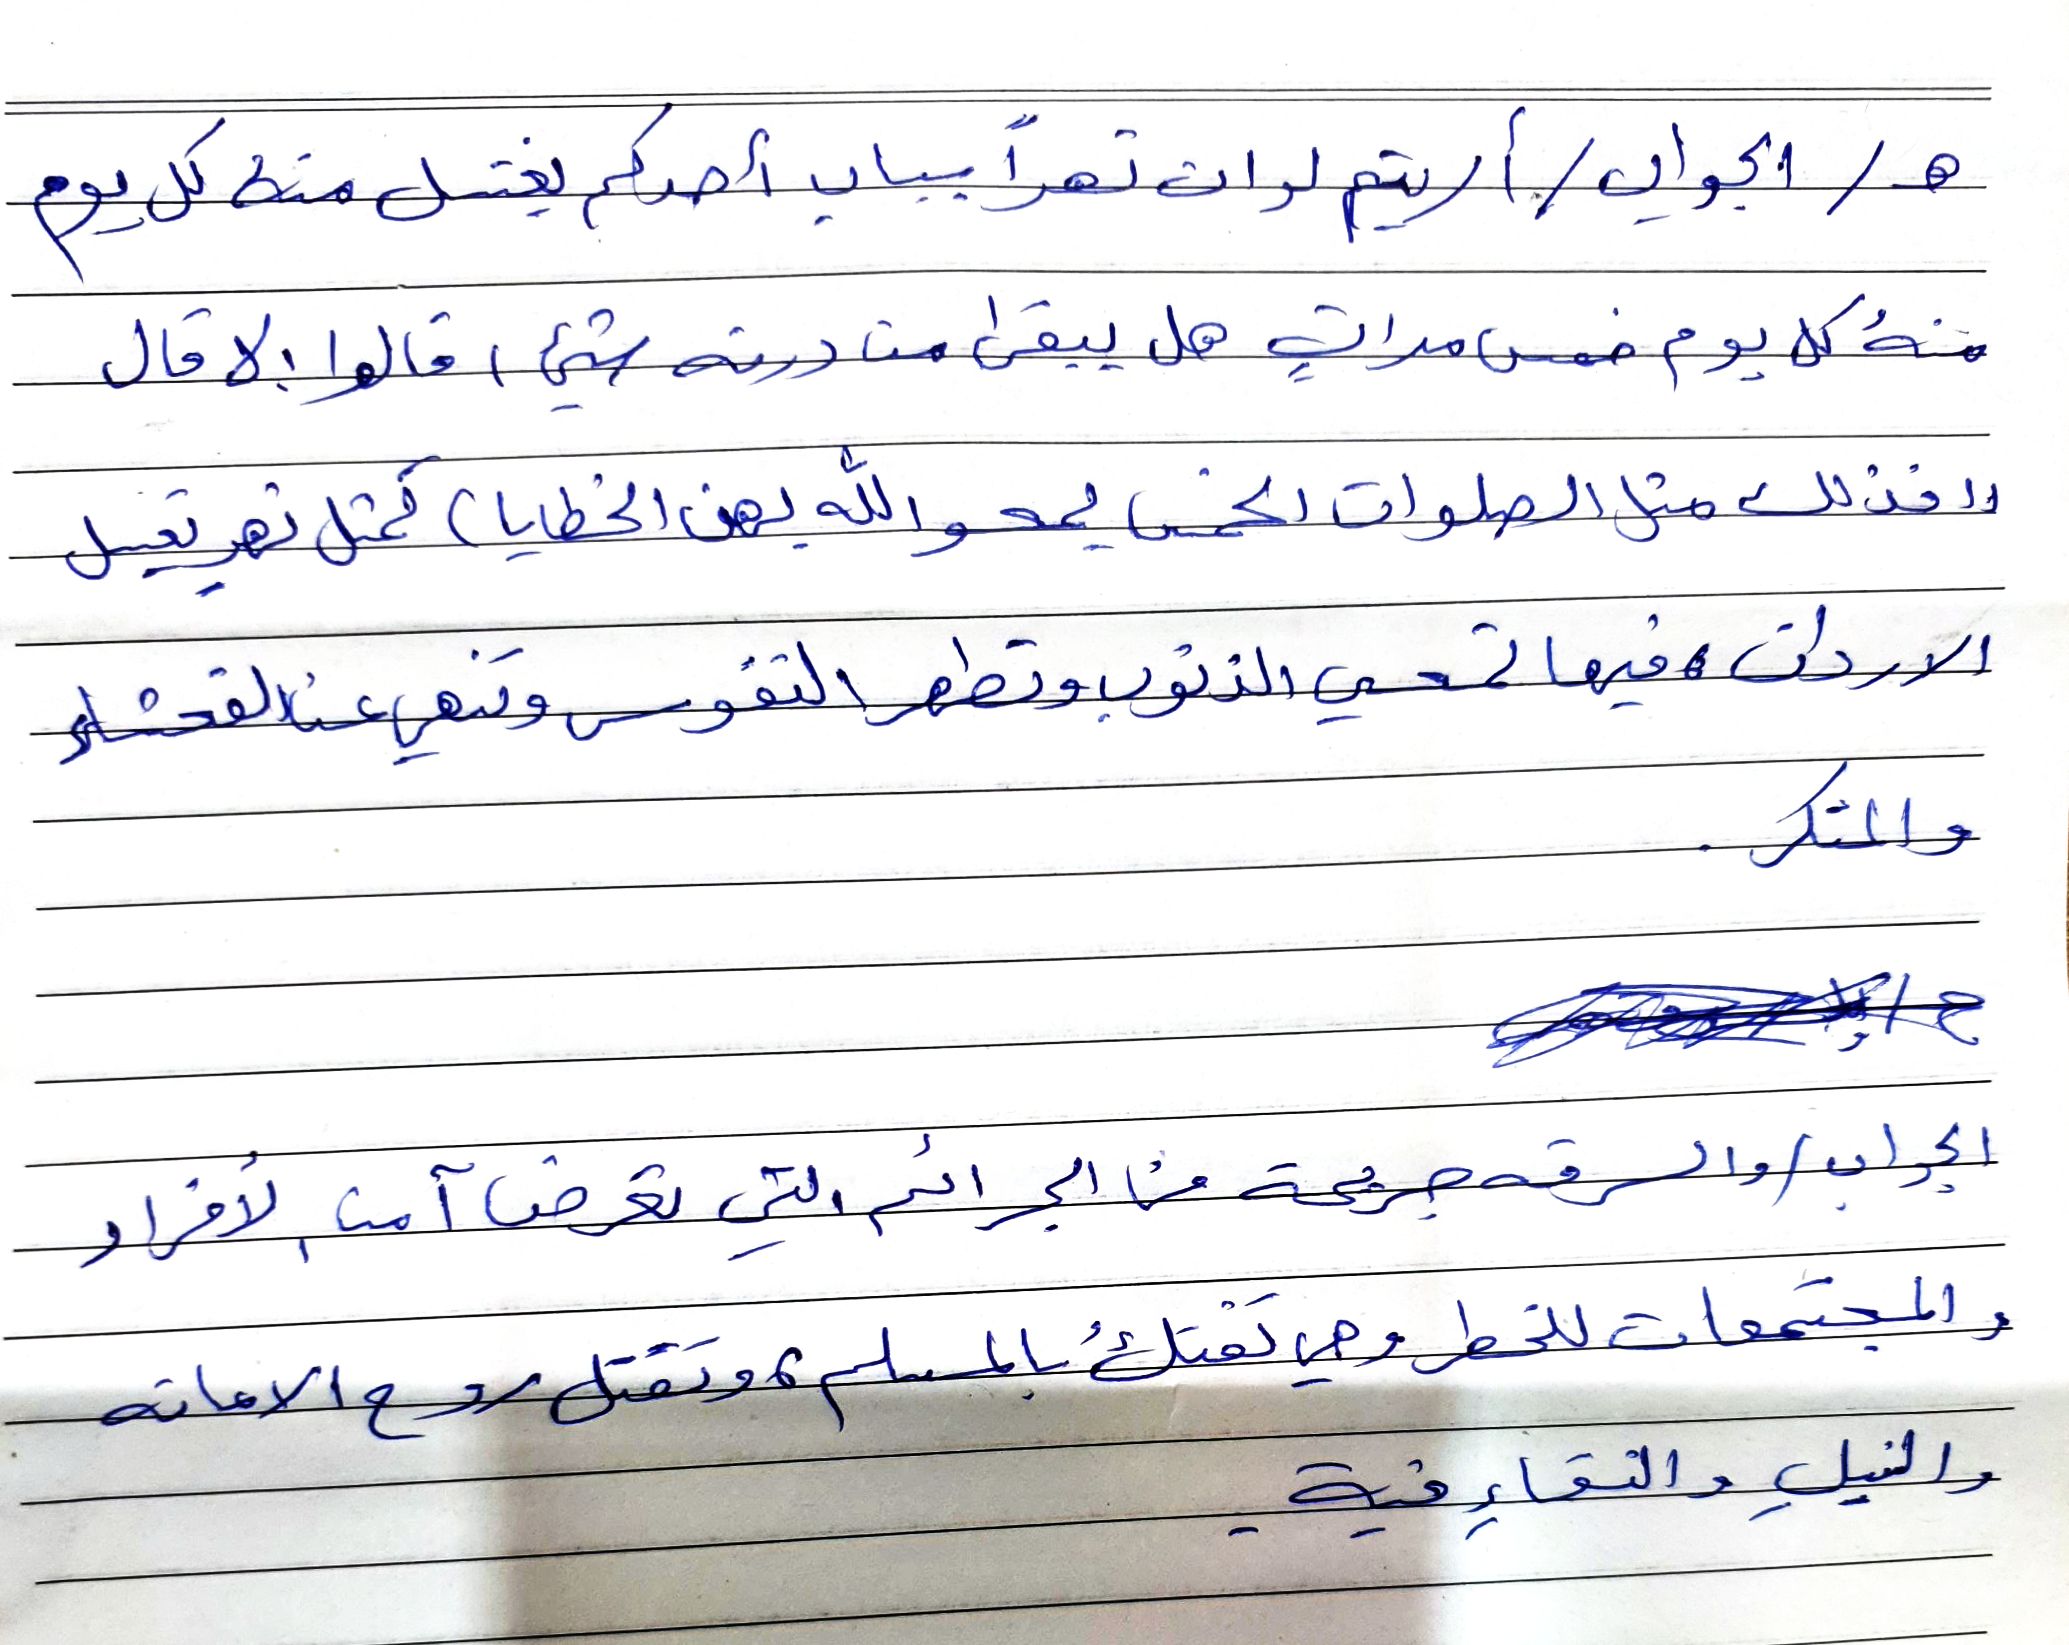 هـ / الجواب / أريتم لو ان نهراً بباب أحدكم يغتسل منه كل يوم
منهُ كل يوم خمس مراتٍ هل يبقى من درنه شيئ ، قالوا : لا قال
(( فذلك مثل الصلوات الخمس يمحو اللّه بهن الخطايا ) كمثل نهر يغسل
الادران ، فيها تمحي الذنوب وتطهر النفوس وتنهي عن الفحشاء
والمنكر .
ح /
الجواب / والسرقه جريمة من الجرائم التي تعرض آمن الأفراد
والمجتمعات للخطر وهي تفتكُ بالمسلم ، وتقتل روح الامانه
والنبلِ والنقاءِ فية .